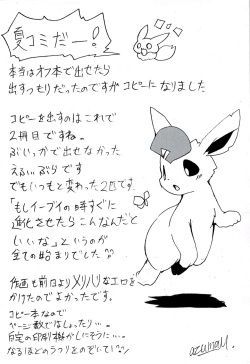 夏コミだー!
本当はオフ本で出せたら
出すつもりだったのですがコピーになりました
コピーを出すのはこれで
2冊目ですね。
ぶいっかで出せなかった
えろいぶりです
でもいつもと変わった2匹です。
「もしイーブイの時すぐに
進化させたらこんなんだと
いいな」というのが
全ての始まりでした
作画も前回よりメリハリなエロを
かけたのでよかったです。
コピー本なので
ページ数ではしょったり…。
自宅の印刷機がしにそうに…。
azuma